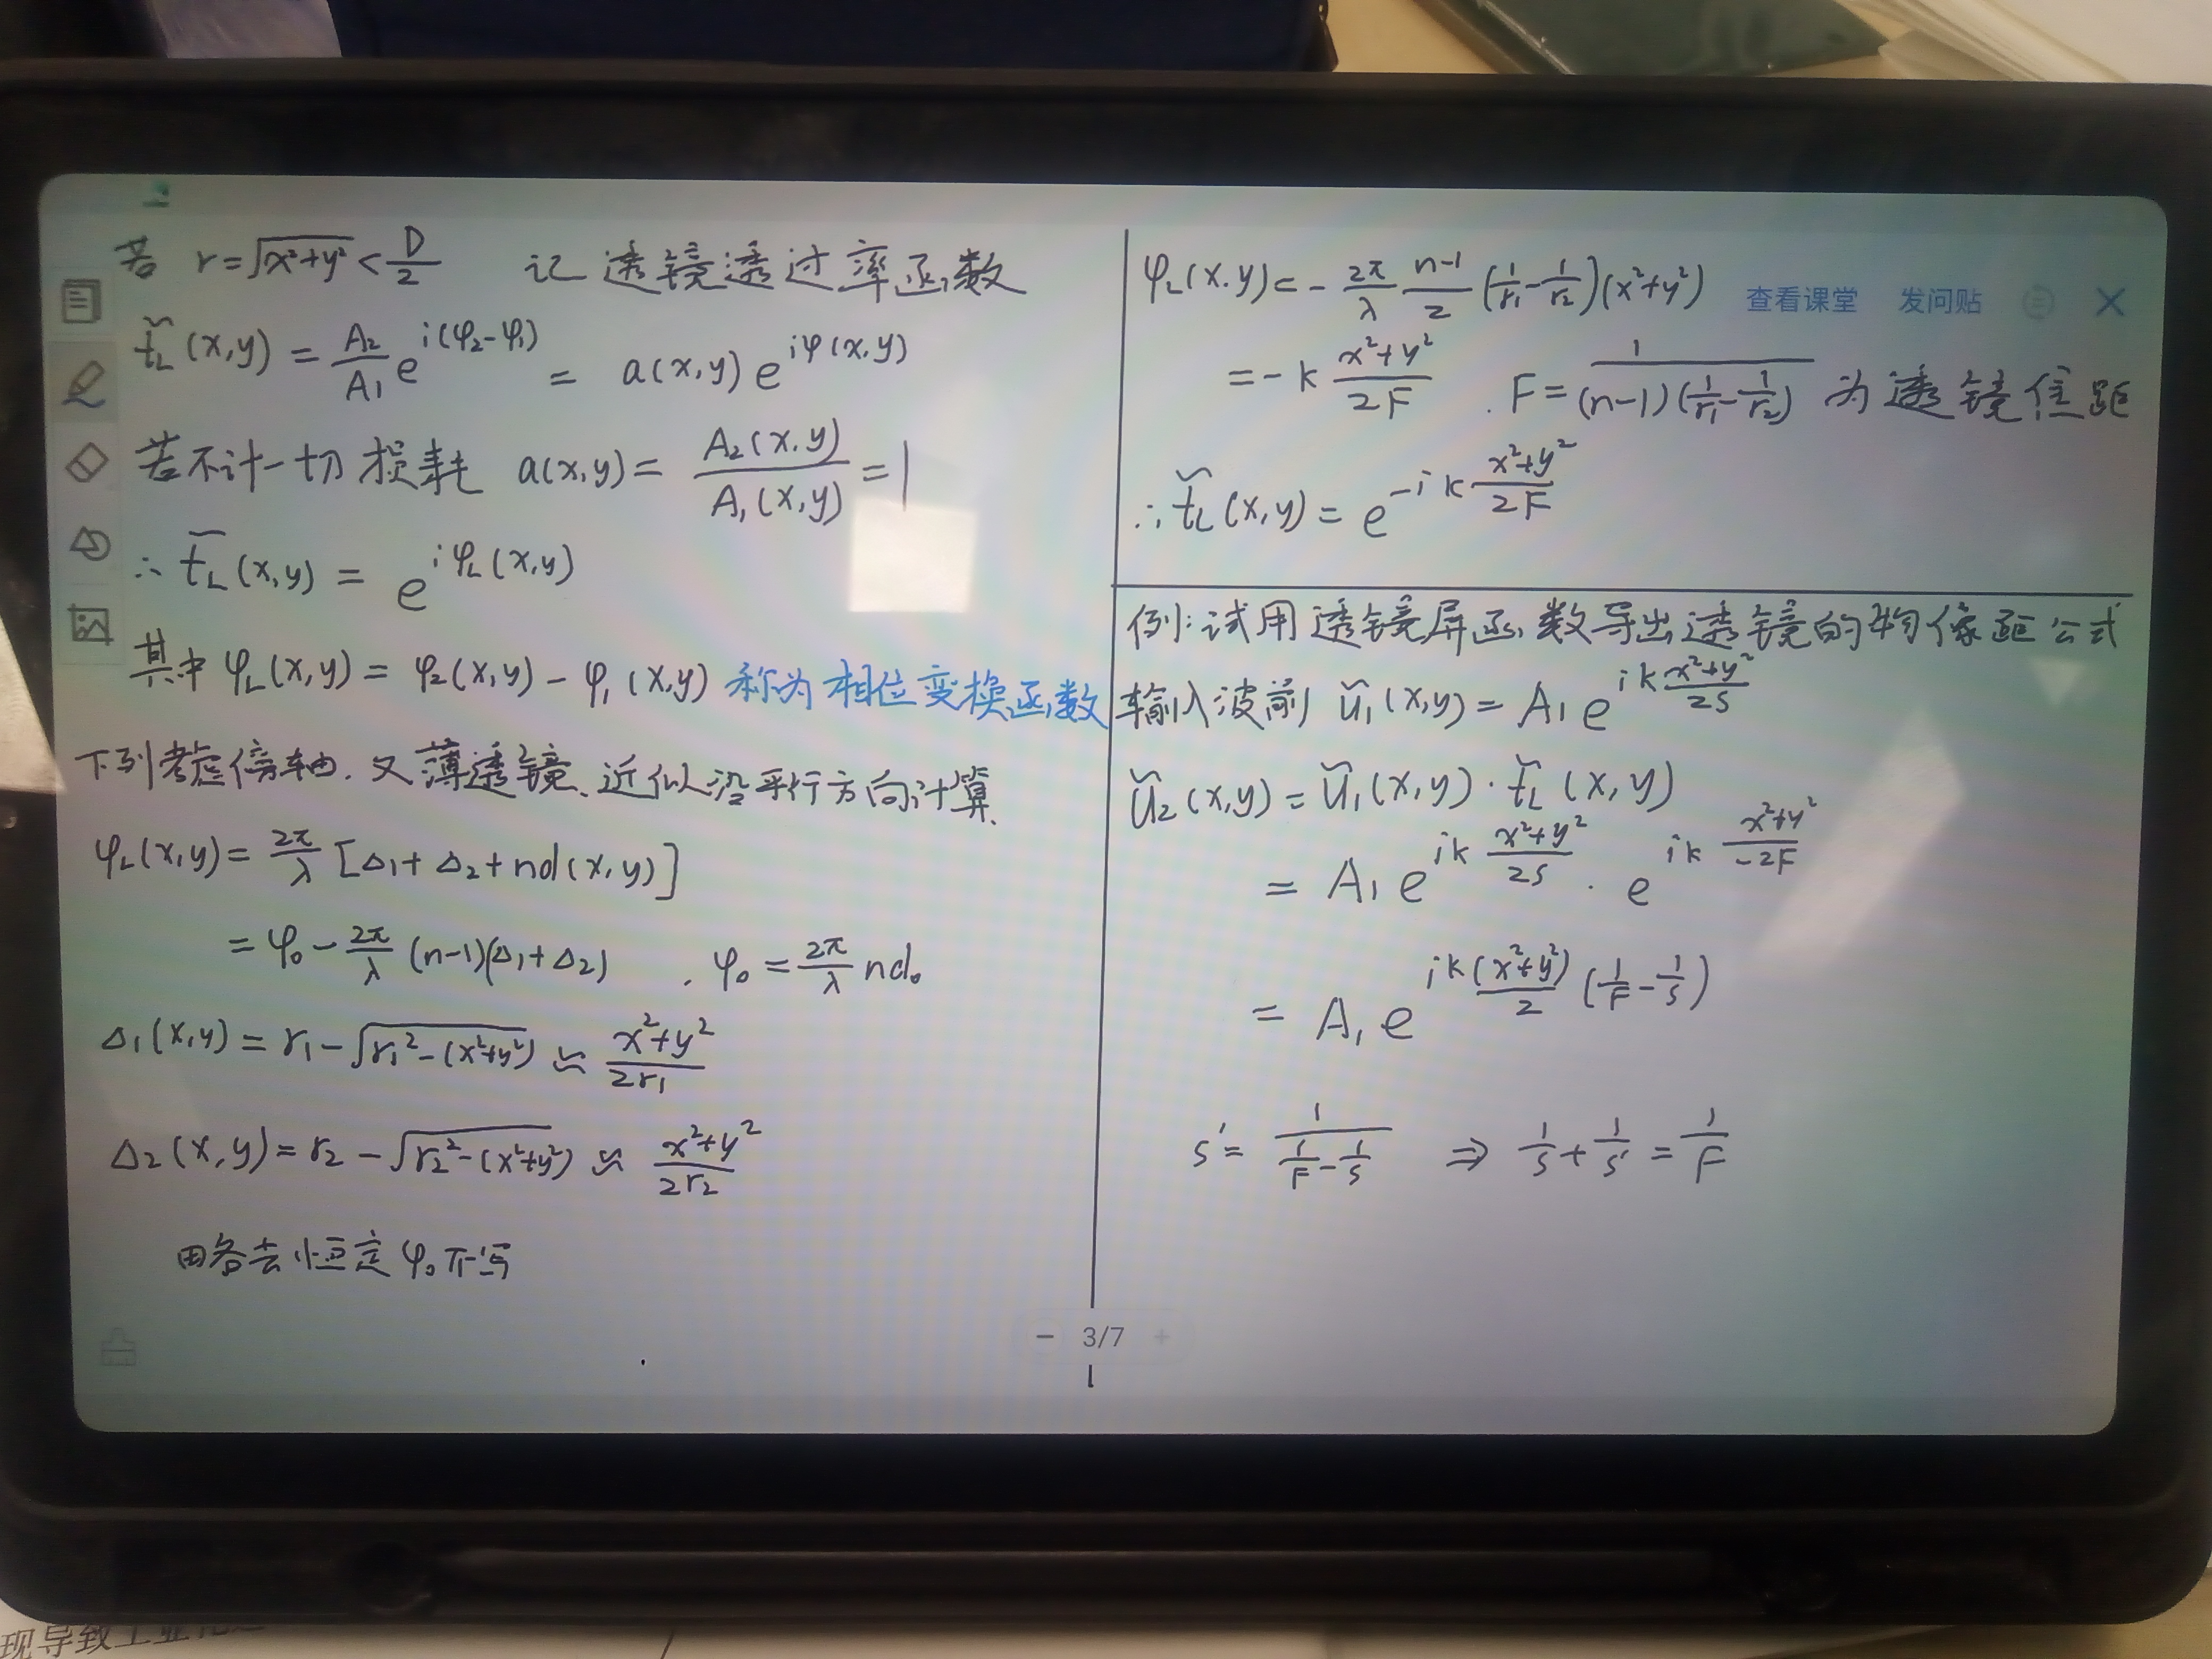 若 r=√(x²+y²) < D/2 记透镜透过率函数
t̃_L(x,y) = A₂/A₁ e^{i(φ₂-φ₁)} = a(x,y) e^{iφ(x,y)}
若不计一切损耗 a(x,y) = A₂(x,y)/A₁(x,y) = 1
∴ t̃_L(x,y) = e^{iφ_L(x,y)}
其中 φ_L(x,y) = φ₂(x,y) - φ₁(x,y) 称为相位变换函数
下列考虑傍轴、又薄透镜、近似沿平行方向计算
φ_L(x,y) = 2π/λ [Δ₁+Δ₂+nd(x,y)]
= φ₀ - 2π/λ (n-1)(Δ₁+Δ₂) , φ₀ = 2π/λ nd₀
Δ₁(x,y) = r₁ - √(r₁²-(x²+y²)) ≈ (x²+y²)/2r₁
Δ₂(x,y) = r₂ - √(r₂²-(x²+y²)) ≈ (x²+y²)/2r₂
略去恒定φ₀不写
φ_L(x.y) = - 2π/λ (n-1)/2 (1/r₁ - 1/r₂)(x²+y²)
查看课堂 发问贴
= -k (x²+y²)/2F . F = 1/((n-1)(1/r₁ - 1/r₂)) 为透镜焦距
∴ t̃_L(x,y) = e^{-ik (x²+y²)/2F}
例:试用透镜屏函数导出透镜的物像距公式
输入波前 ũ₁(x,y) = A₁ e^{ik (x²+y²)/2s}
ũ₂(x,y) = ũ₁(x,y)·t̃_L(x,y)
= A₁ e^{ik (x²+y²)/2s} · e^{ik (x²+y²)/-2F}
= A₁ e^{ik(x²+y²)/2 (1/F - 1/s)}
s' = 1/(1/F - 1/s) ⇒ 1/s + 1/s' = 1/F
- 3/7 +
现导致工业化